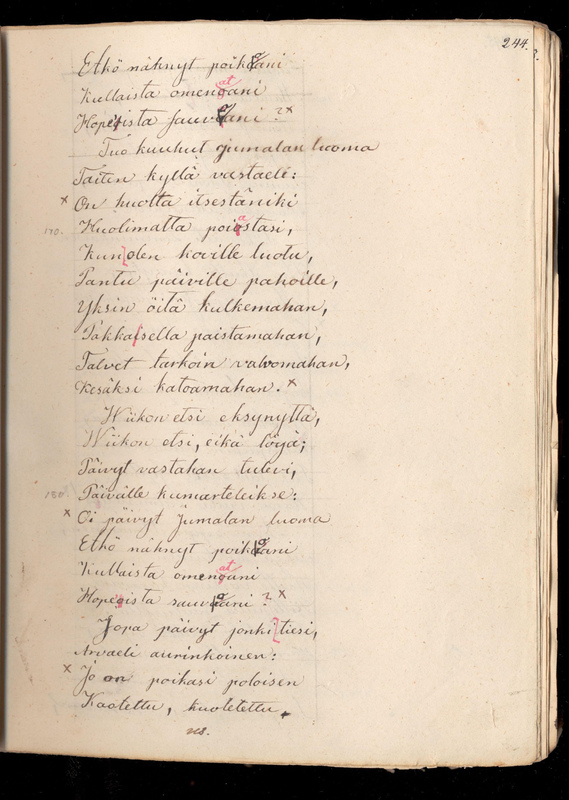 244.
Etkö nähnyt poikoani
Kullaista omenatani
Hopeista sauvoani? ×
Tuo kuuhut jumalan luoma
Taiten kyllä vastaeli:
× On huolta itsestäniki
170. Huolimatta poiastasi,
Kun olen koville luotu,
Pantu päiville pahoille,
Yksin öitä kulkemahan,
Pakkasella paistamahan,
Talvet tarkoin valvomahan,
Kesäksi katoamahan. ×
Wiikon etsi eksynyttä,
Wiikon etsi, eikä löyä;
Päivyt vastahan tulevi,
180. Päivälle kumarteleikse:
× Oi päivyt Jumalan luoma
Etkö nähnyt poikoani
Kullaista omenatani
Hopeista sauvoani? ×
Jopa päivyt jonki tiesi,
Arvaeli aurinkoinen:
× Jo on poikasi poloisen
Kaotettu, kuoletettu,